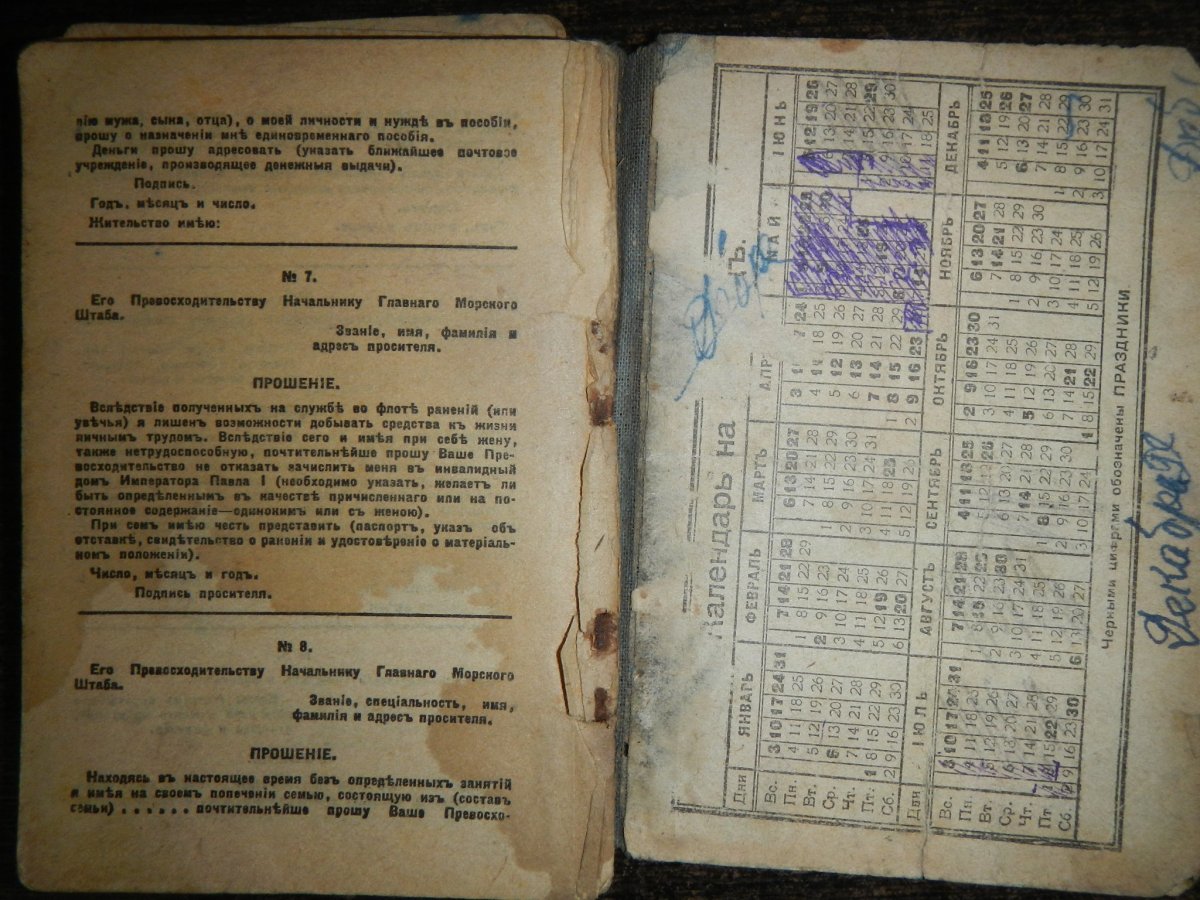 нію мужа, сына, отца), о моей личности и нуждѣ въ пособіи,
прошу о назначеніи мнѣ единовременнаго пособія.
Деньги прошу адресовать (указать ближайшее почтовое
учрежденіе, производящее денежныя выдачи).
Подпись.
Годъ, мѣсяцъ и число.
Жительство имѣю:
№ 7.
Его Превосходительству Начальнику Главнаго Морского
Штаба.
Званіе, имя, фамилія и
адресъ просителя.
ПРОШЕНІЕ.
Вслѣдствіе полученныхъ на службѣ во флотѣ раненій (или
увѣчья) я лишенъ возможности добывать средства къ жизни
личнымъ трудомъ. Вслѣдствіе сего и имѣя при себѣ жену,
также нетрудоспособную, почтительнѣйше прошу Ваше Пре-
восходительство не отказать зачислить меня въ инвалидный
домъ Императора Павла I (необходимо указать, желаетъ ли
быть опредѣленнымъ въ качествѣ причисленнаго или на по-
стоянное содержаніе—одинокимъ или съ женою).
При семъ имѣю честь представить (паспортъ, указъ объ
отставкѣ, свидѣтельство о раненіи и удостовѣреніе о матеріаль-
номъ положеніи).
Число, мѣсяцъ и годъ.
Подпись просителя.
№ 8.
Его Превосходительству Начальнику Главнаго Морского
Штаба.
Званіе, спеціальность, имя,
фамилія и адресъ просителя.
ПРОШЕНІЕ.
Находясь въ настоящее время безъ опредѣленныхъ занятій
и имѣя на своемъ попеченіи семью, состоящую изъ (составъ
семьи) . . . . . . почтительнѣйше прошу Ваше Превосхо-
Календарь на
Дни ЯНВАРЬ ФЕВРАЛЬ МАРТЪ АПР МАЙ ІЮНЬ
Вс. 3 10 17 24 31 7 14 21 28 6 13 20 27 3 24 12 19 26
Пн. 4 11 18 25 1 8 15 22 29 7 14 21 28 4 11 18 25 13 20 27
Вт. 5 12 19 26 2 9 16 23 1 8 15 22 29 5 12 19 26 14 21 28
Ср. 6 13 20 27 3 10 17 24 2 9 16 23 30 6 13 20 27 15 22 29
Чт. 7 14 21 28 4 11 18 25 3 10 17 24 31 7 14 21 28 16 23 30
Пт. 1 8 15 22 29 5 12 19 26 4 11 18 25 1 8 15 22 29 17 24
Сб. 2 9 16 23 30 6 13 20 27 5 12 19 26 2 9 16 23 18 25
Дни ІЮЛЬ АВГУСТЪ СЕНТЯБРЬ ОКТЯБРЬ НОЯБРЬ ДЕКАБРЬ
Вс. 3 10 17 24 31 7 14 21 28 4 11 18 25 2 9 16 23 30 6 13 20 27 4 11 18 25
Пн. 4 11 18 25 1 8 15 22 29 5 12 19 26 3 10 17 24 31 7 14 21 28 5 12 19 26
Вт. 5 12 19 26 2 9 16 23 30 6 13 20 27 4 11 18 25 1 8 15 22 29 6 13 20 27
Ср. 6 13 20 27 3 10 17 24 31 7 14 21 28 5 12 19 26 2 9 16 23 30 7 14 21 28
Чт. 7 14 21 28 4 11 18 25 1 8 15 22 29 6 13 20 27 3 10 17 24 1 8 15 22 29
Пт 1 8 15 22 29 5 12 19 26 2 9 16 23 30 7 14 21 28 4 11 18 25 2 9 16 23 30
Сб 2 9 16 23 30 6 13 20 27 3 10 17 24 1 8 15 22 29 5 12 19 26 3 10 17 24 31
Черными цифрами обозначены ПРАЗДНИКИ
Декабря